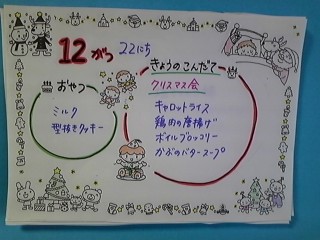 12がつ 22にち
おやつ
ミルク
型抜きクッキー
きょうのこんだて
クリスマス会
キャロットライス
鶏肉の唐揚げ
ボイルブロッコリー
かぶのバタースープ